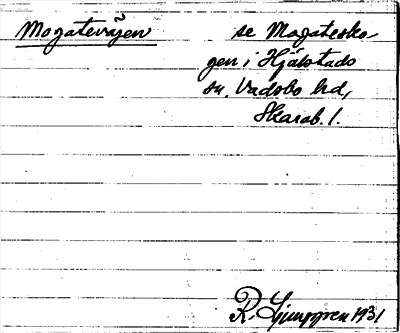 Mogatevägen se Mogatesko-
gen i Hjälstads
sn. Vadsbo hd,
Skarab. l.
R. Ljunggren 1931